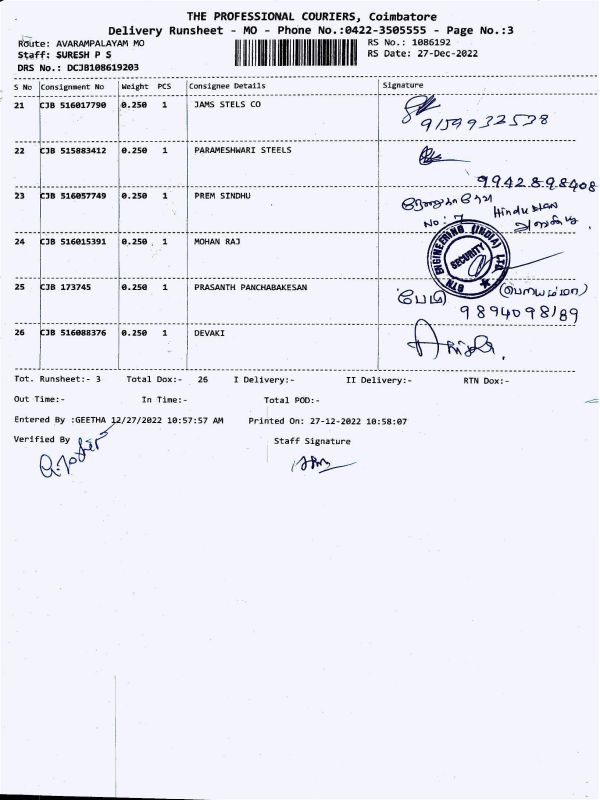 THE PROFESSIONAL COURIERS, Coimbatore
Delivery Runsheet - MO - Phone No.:0422-3505555 - Page No.:3
Route: AVARAMPALAYAM MO RS No.: 1086192
Staff: SURESH P S RS Date: 27-Dec-2022
DRS No.: DCJB108619203
S No Consignment No Weight PCS Consignee Details Signature
21 CJB 516017790 0.250 1 JAMS STELS CO
9159932538
22 CJB 515883412 0.250 1 PARAMESHWARI STEELS
9942898408
23 CJB 516057749 0.250 1 PREM SINDHU
No: 7 Hindustan
24 CJB 516015391 0.250 1 MOHAN RAJ
GTN ENGINEERING (INDIA) LTD.
SECURITY
25 CJB 173745 0.250 1 PRASANTH PANCHABAKESAN
பேபி (பெரியம்மா)
9894098189
26 CJB 516088376 0.250 1 DEVAKI
Tot. Runsheet:- 3 Total Dox:- 26 I Delivery:- II Delivery:- RTN Dox:-
Out Time:- In Time:- Total POD:-
Entered By :GEETHA 12/27/2022 10:57:57 AM Printed On: 27-12-2022 10:58:07
Verified By Staff Signature